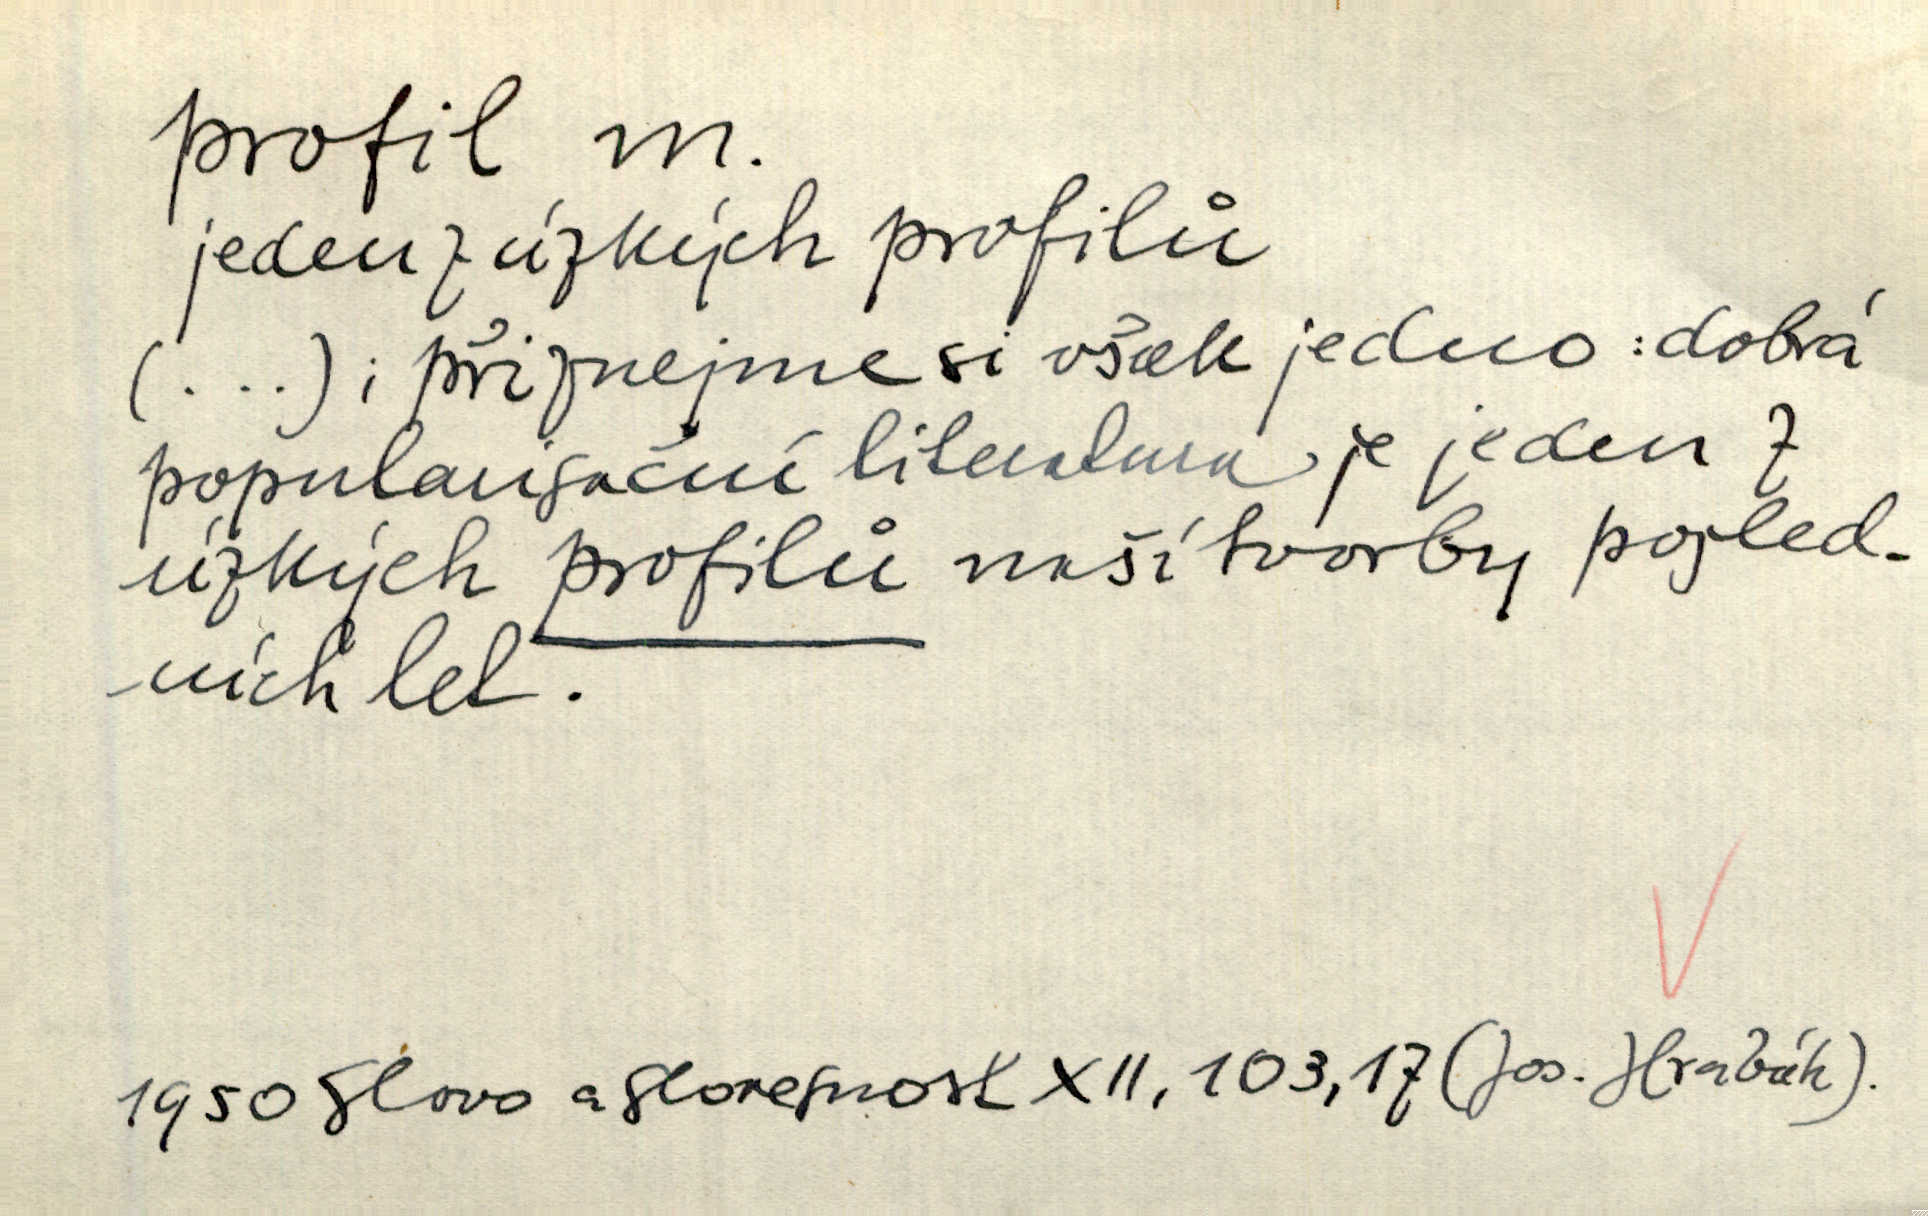 profil m.
jeden z úzkých profilů
(...); přiznejme si však jedno: dobrá
popularisační literatura je jeden z
úzkých profilů naší tvorby posled-
ních let.
1950 Slovo a slovesnost XII, 103, 17 (Jos. Hrabák).